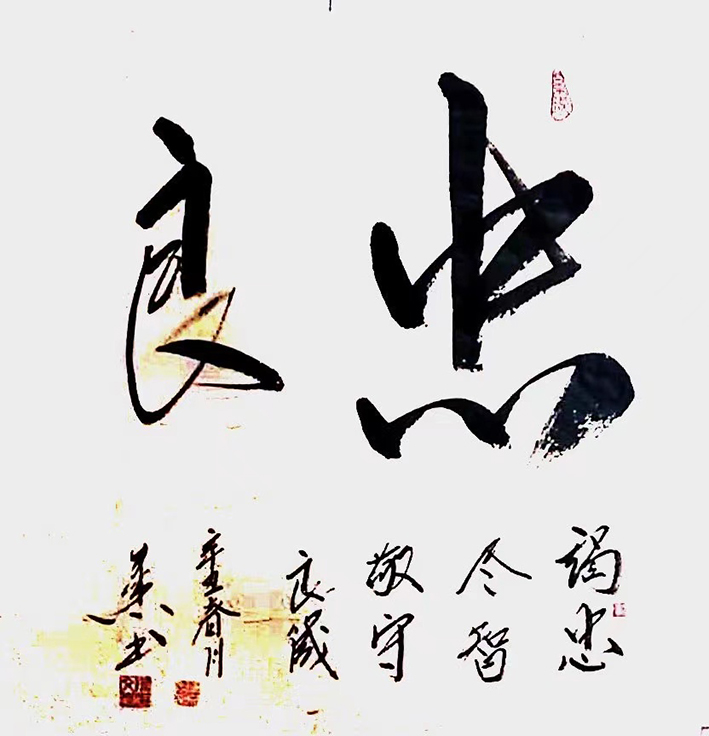 忠良
竭忠
尽智
敬守
良
辛丑春月
书